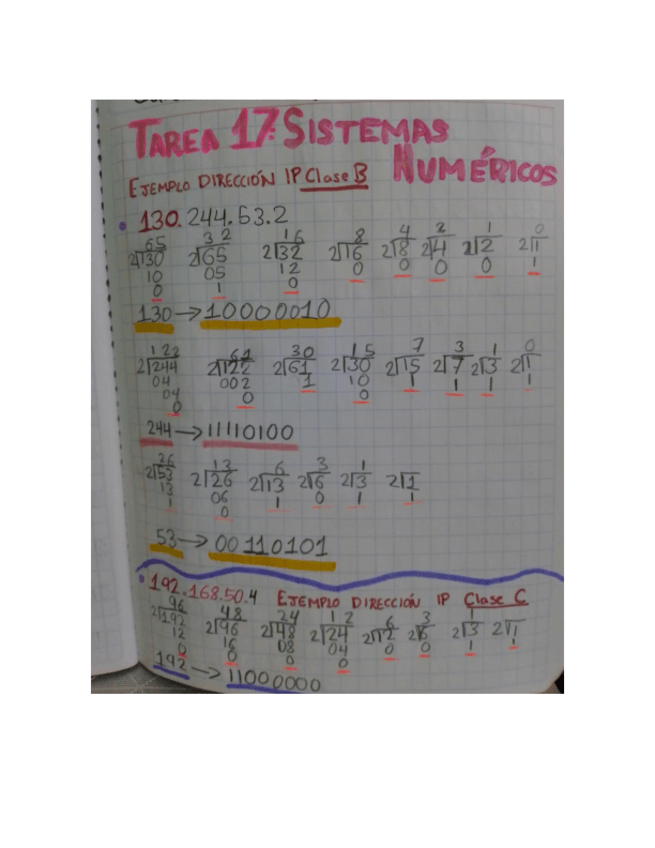 TAREA 17: SISTEMAS
NUMÉRICOS
EJEMPLO DIRECCIÓN IP Clase B
130.244.53.2
65 32 16 8 4 2 1 0
2√130 2√65 2√32 2√16 2√8 2√4 2√2 2√1
10 05 12 0 0 0 0 1
0 1 0
130 → 10000010
122 61 30 15 7 3 1 0
2√244 2√122 2√61 2√30 2√15 2√7 2√3 2√1
04 002 1 10 1 1 1 1
04 0 0
0
244 → 11110100
26 13 6 3 1
2√53 2√26 2√13 2√6 2√3 2√1
13 06 1 0 1 1
1 0
53 → 00110101
192.168.50.4 EJEMPLO DIRECCIÓN IP Clase C
96 48 24 12 6 3 1
2√192 2√96 2√48 2√24 2√12 2√6 2√3 2√1
12 16 08 04 0 0 1 1
0 0 0 0
192 → 11000000